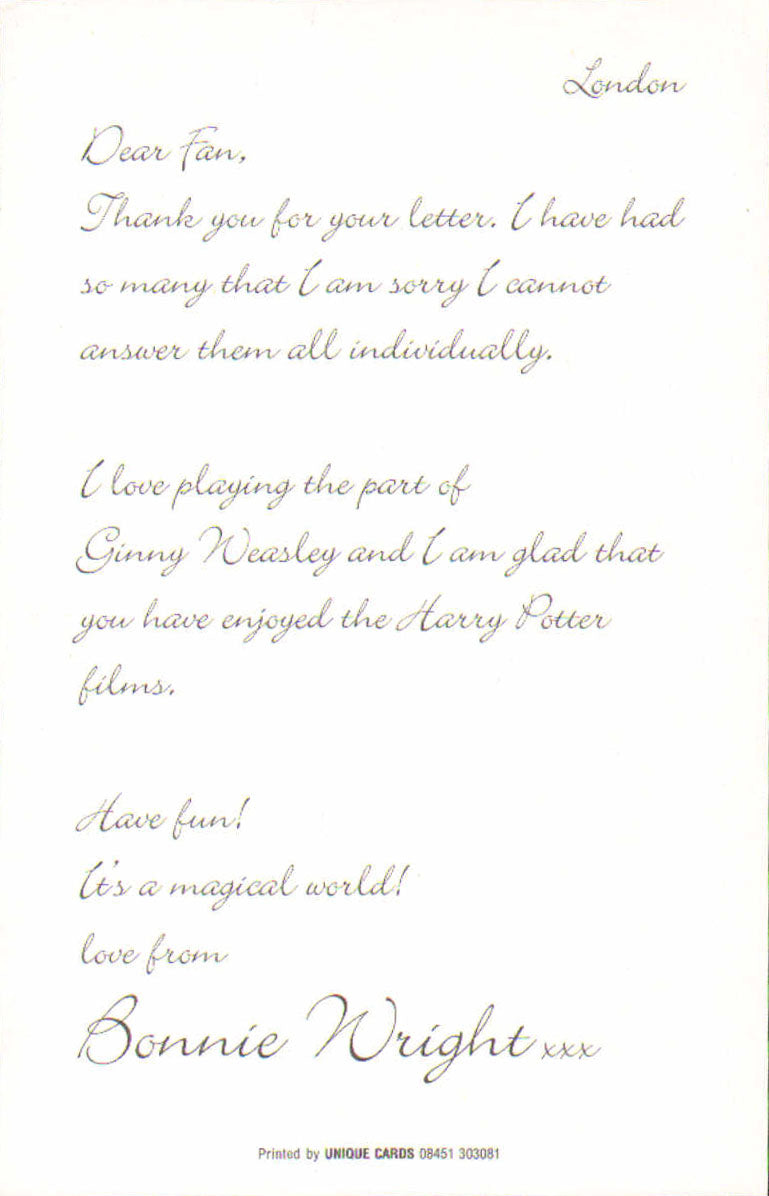 London
Dear Fan,
Thank you for your letter. I have had
so many that I am sorry I cannot
answer them all individually.
I love playing the part of
Ginny Weasley and I am glad that
you have enjoyed the Harry Potter
films.
Have fun!
It's a magical world!
love from
Bonnie Wright xxx
Printed by UNIQUE CARDS 08451 303081